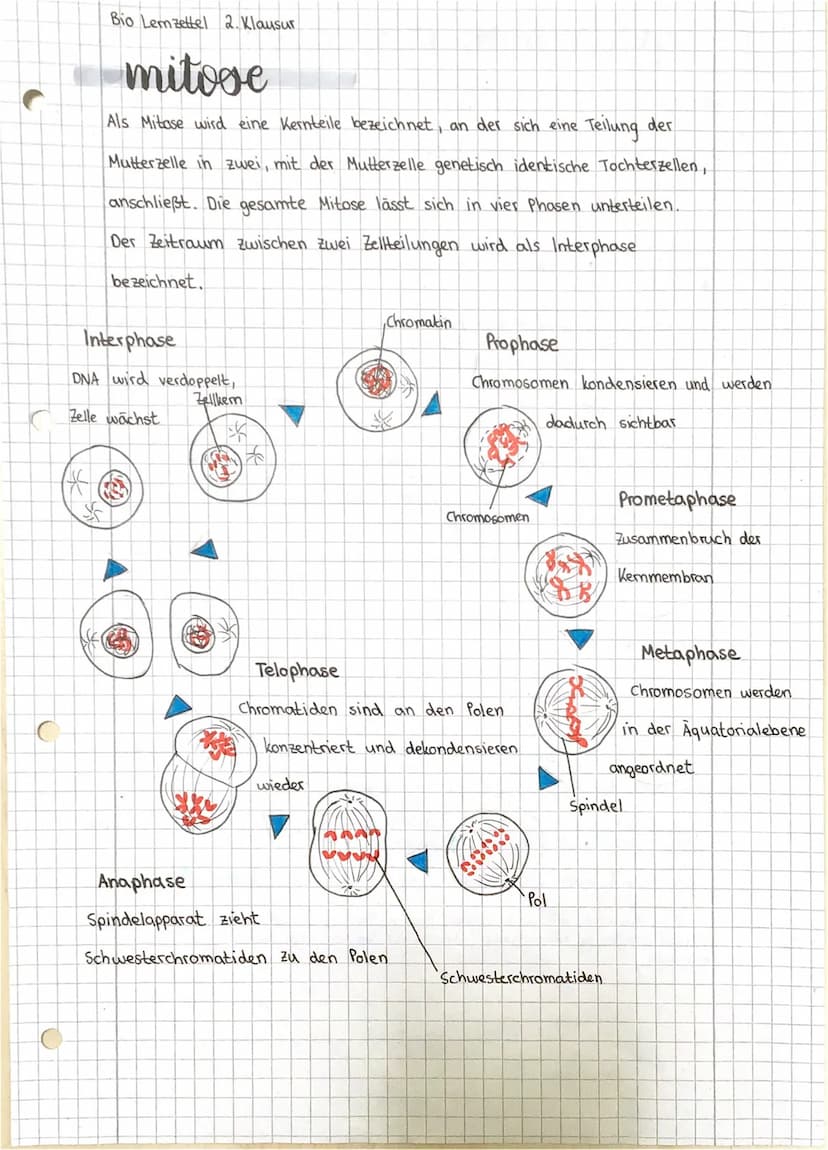 Bio Lernzettel 2. Klausur
mitose
Als Mitose wird eine Kernteile bezeichnet, an der sich eine Teilung der
Mutterzelle in zwei, mit der Mutterzelle genetisch identische Tochterzellen,
anschließt. Die gesamte Mitose lässt sich in vier Phasen unterteilen.
Der Zeitraum zwischen zwei Zellteilungen wird als Interphase
bezeichnet.
Chromatin
Interphase
DNA wird verdoppelt,
Zelle wächst
Zellkern
Prophase
Chromosomen kondensieren und werden
dadurch sichtbar
Chromosomen
Prometaphase
Zusammenbruch der
Kernmembran
Metaphase
Chromosomen werden
in der Äquatorialebene
angeordnet
Spindel
Telophase
Chromatiden sind an den Polen
konzentriert und dekondensieren
wieder
Pol
Anaphase
Spindelapparat zieht
Schwesterchromatiden zu den Polen
Schwesterchromatiden